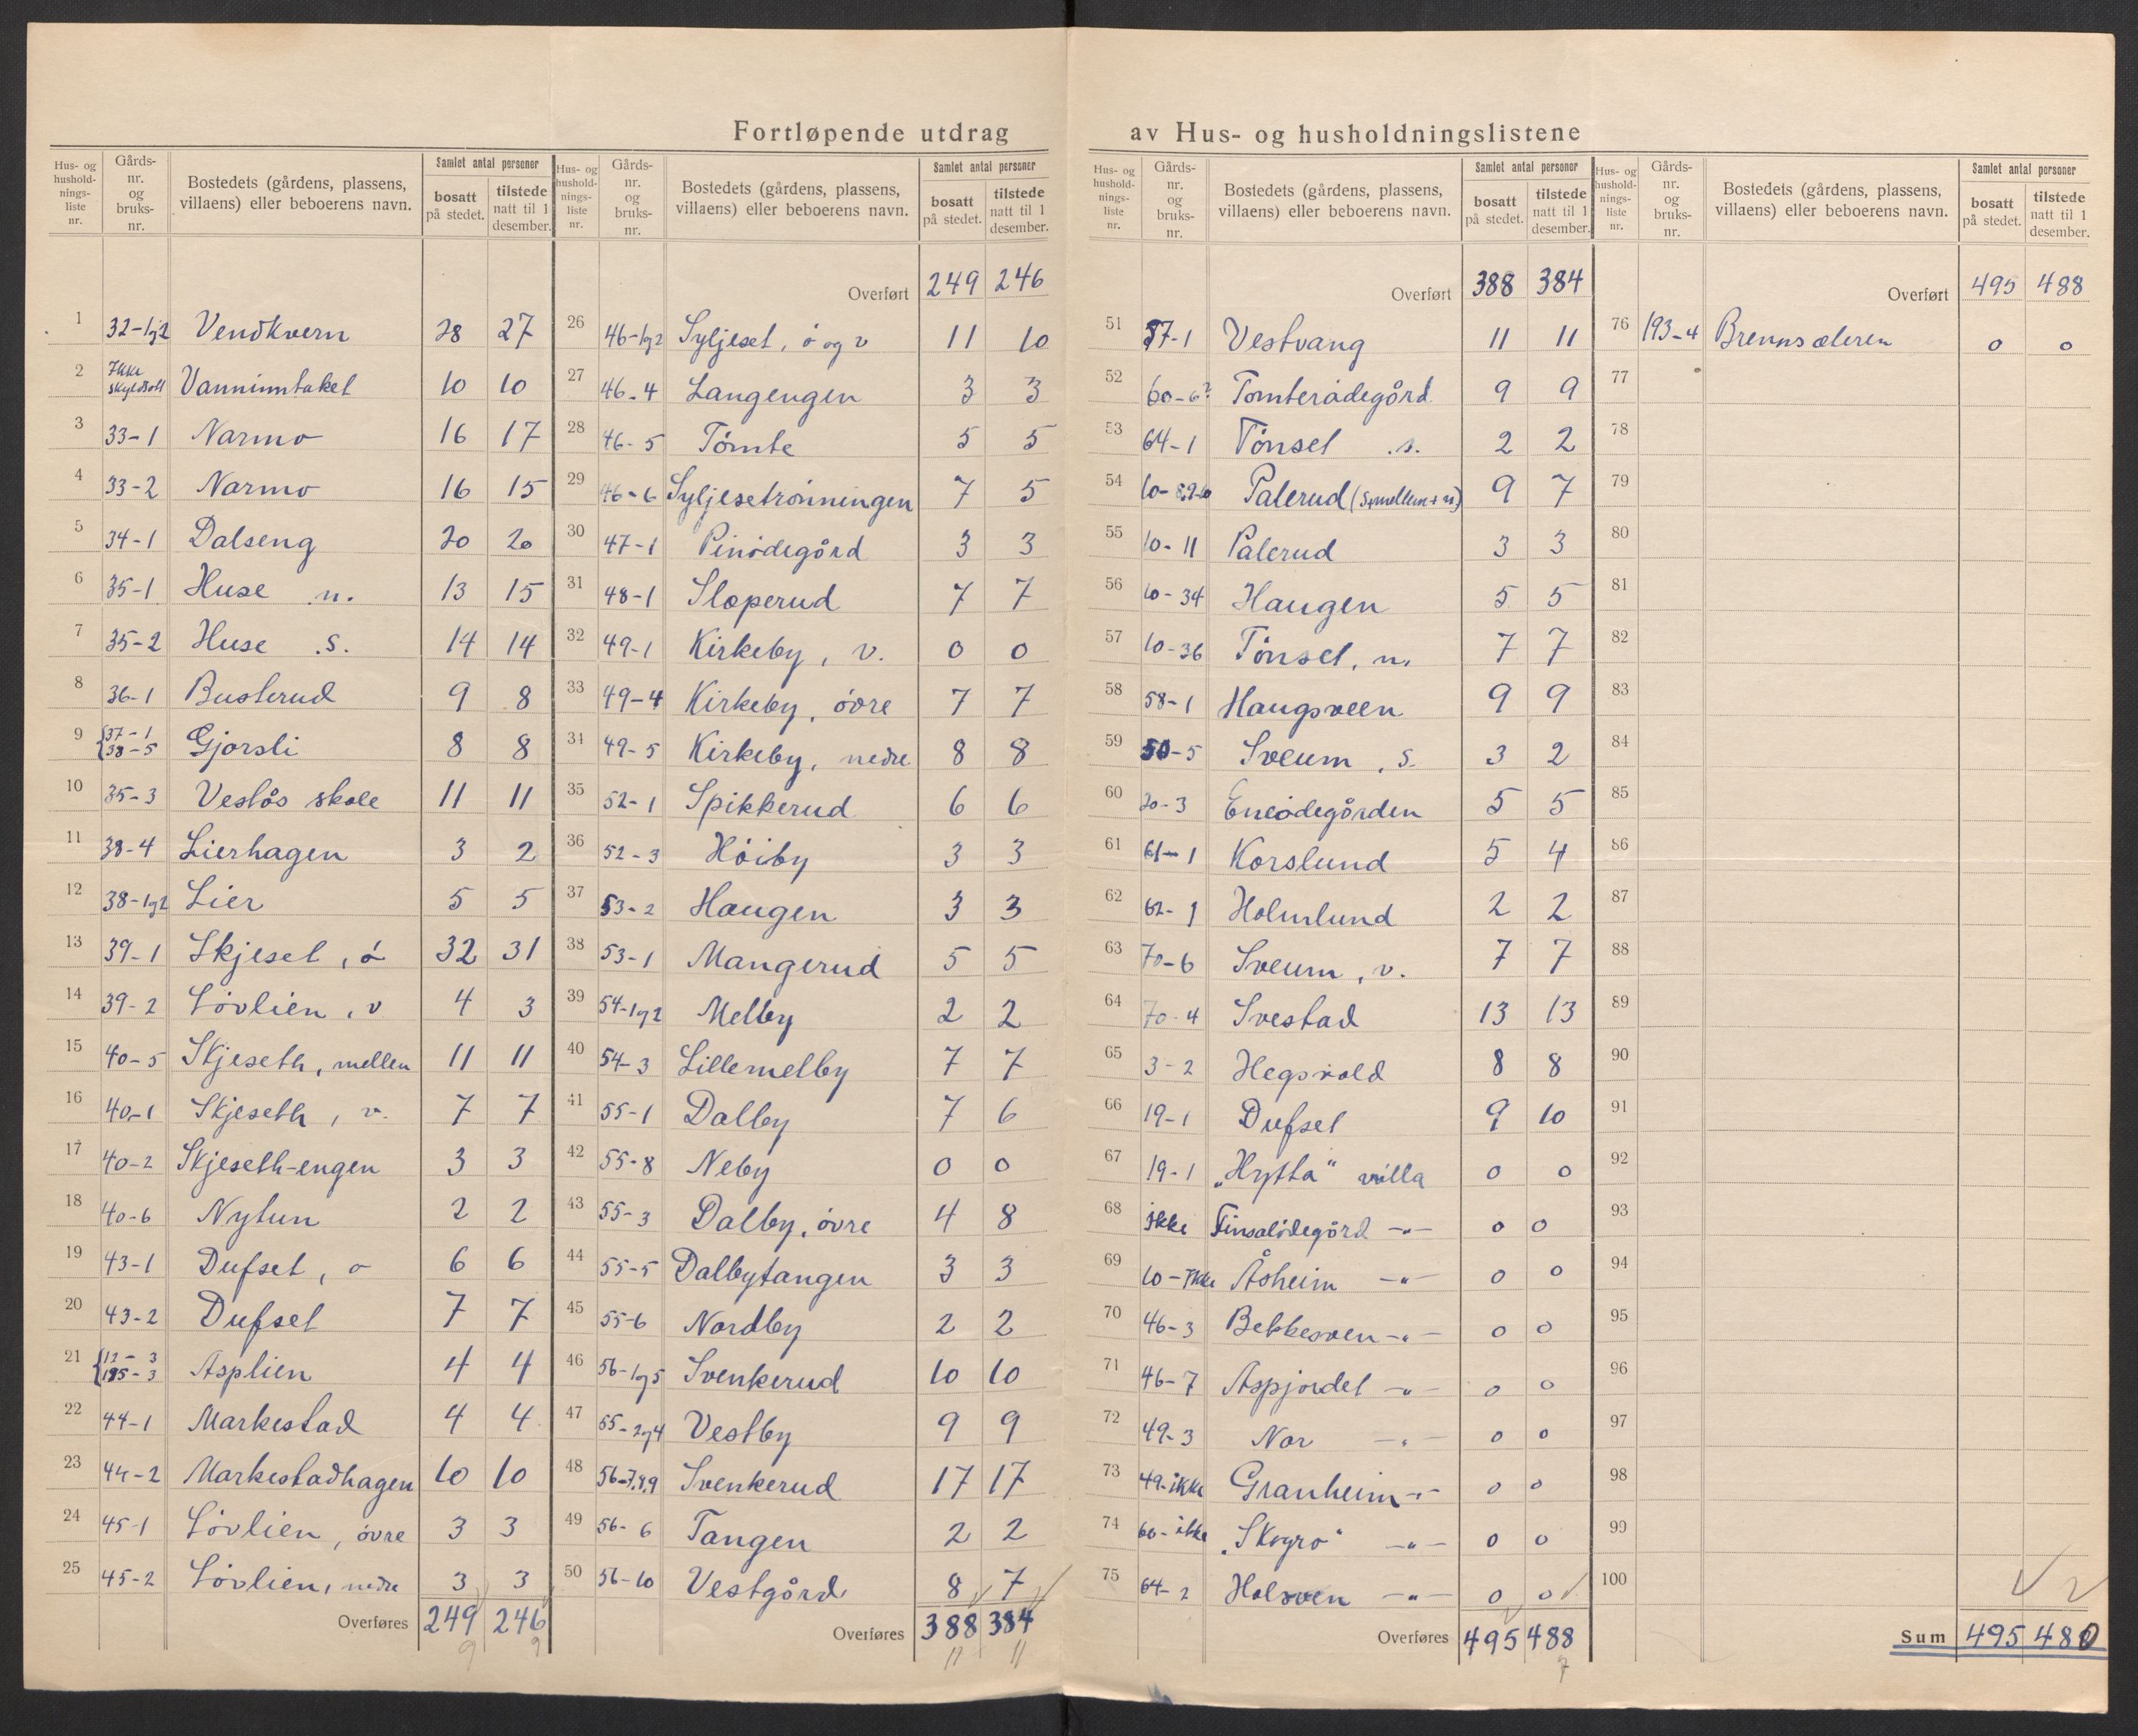 Fortløpende utdrag av Hus- og husholdningslistene
Hus- og hushold-nings-liste nr. Gårds-nr. og bruks-nr. Bostedets (gårdens, plassens, villaens) eller beboerens navn. Samlet antal personer bosatt på stedet. tilstede natt til 1 desember.
1 32-1g2 Vendkvern 28 27
2 Ikke skyldsatt Vanninntaket 10 10
3 33-1 Narmo 16 17
4 33-2 Narmo 16 15
5 34-1 Dalseng 20 20
6 35-1 Huse n. 13 15
7 35-2 Huse s. 14 14
8 36-1 Busterud 9 8
9 37-1 38-5 Gjorsli 8 8
10 35-3 Vestås skole 11 11
11 38-4 Lierhagen 3 2
12 38-1g2 Lier 5 5
13 39-1 Skjeset, ø 32 31
14 39-2 Løvlien, v 4 3
15 40-5 Skjeseth, mellem 11 11
16 40-1 Skjeseth, v. 7 7
17 40-2 Skjeseth-engen 3 3
18 40-6 Nytun 2 2
19 43-1 Dufset, ø 6 6
20 43-2 Dufset 7 7
21 12-3 195-3 Asplien 4 4
22 44-1 Markestad 4 4
23 44-2 Markestadhagen 10 10
24 45-1 Løvlien, øvre 3 3
25 45-2 Løvlien, nedre 3 3
Overføres 249 246
9 9
Hus- og hushold-nings-liste nr. Gårds-nr. og bruks-nr. Bostedets (gårdens, plassens, villaens) eller beboerens navn. Samlet antal personer bosatt på stedet. tilstede natt til 1 desember.
Overført 249 246
26 46-1g2 Syljeset, ø og v 11 10
27 46-4 Langengen 3 3
28 46-5 Tømte 5 5
29 46-6 Syljesetrønningen 7 5
30 47-1 Pinødegård 3 3
31 48-1 Sloperud 7 7
32 49-1 Kirkeby, v. 0 0
33 49-4 Kirkeby, øvre 7 7
34 49-5 Kirkeby, nedre 8 8
35 52-1 Spikkerud 6 6
36 52-3 Høiby 3 3
37 53-2 Haugen 3 3
38 53-1 Mangerud 5 5
39 54-1g2 Melby 2 2
40 54-3 Lillemelby 7 7
41 55-1 Dalby 7 6
42 55-8 Neby 0 0
43 55-3 Dalby, øvre 4 8
44 55-5 Dalbytangen 3 3
45 55-6 Nordby 2 2
46 56-1g5 Svenkerud 10 10
47 55-2g4 Vestby 9 9
48 56-7,8,9 Svenkerud 17 17
49 56-6 Tangen 2 2
50 56-10 Vestgård 8 7
Overføres 388 384
11 11
Hus- og hushold-nings-liste nr. Gårds-nr. og bruks-nr. Bostedets (gårdens, plassens, villaens) eller beboerens navn. Samlet antal personer bosatt på stedet. tilstede natt til 1 desember.
Overført 388 384
51 57-1 Vestvang 11 11
52 60-6? Tomterødegård 9 9
53 64-1 Tønset .s. 2 2
54 10-8,9-10 Palerud (s+mellem+n) 9 7
55 10-11 Palerud 3 3
56 10-34 Haugen 5 5
57 10-36 Tønset, n. 7 7
58 58-1 Haugsveen 9 9
59 50-5 Sveum, s. 3 2
60 20-3 Eneødegården 5 5
61 61-1 Korslund 5 4
62 62-1 Holmlund 2 2
63 70-6 Sveum, v. 7 7
64 70-4 Svestad 13 13
65 3-2 Hegsvold 8 8
66 19-1 Dufset 9 10
67 19-1 „Hytta" villa 0 0
68 ikke Finsalødegård -"- 0 0
69 10-ikke Åsheim -"- 0 0
70 46-3 Bekkesven -"- 0 0
71 46-7 Aspjordet -"- 0 0
72 49-3 Nor -"- 0 0
73 49-ikke Granheim -"- 0 0
74 60-ikke „Skogro" -"- 0 0
75 64-2 Holsven -"- 0 0
Overføres 495 488
7
Hus- og hushold-nings-liste nr. Gårds-nr. og bruks-nr. Bostedets (gårdens, plassens, villaens) eller beboerens navn. Samlet antal personer bosatt på stedet. tilstede natt til 1 desember.
Overført 495 488
76 193-4 Brennsæteren 0 0
77
78
79
80
81
82
83
84
85
86
87
88
89
90
91
92
93
94
95
96
97
98
99
100
Sum 495 480